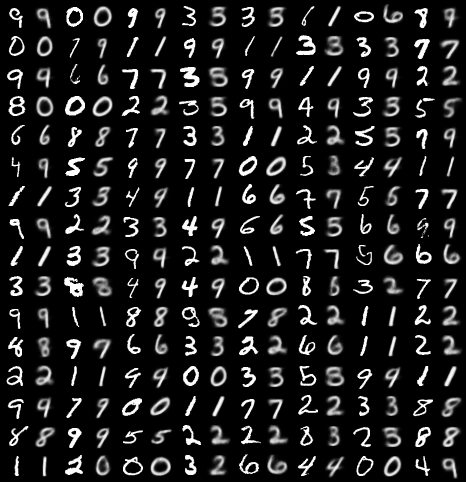 9 9 0 0 9 9 3 5 3 5 6 1 0 6 8 9
0 0 7 9 1 1 9 9 1 1 3 3 3 3 7 7
9 9 6 6 7 7 3 5 9 9 1 1 9 9 2 2
8 0 0 0 2 2 3 5 9 9 4 9 3 3 5 5
6 6 8 8 7 7 3 3 1 1 2 2 5 5 7 9
4 9 5 5 9 9 7 7 0 0 5 3 4 4 1 1
1 1 3 3 4 9 1 1 6 6 7 7 5 5 7 7
9 9 2 2 3 3 4 9 6 6 5 5 6 6 9 9
1 1 3 3 9 9 2 2 1 1 7 7 5 6 6 6
3 3 8 8 4 9 4 9 0 0 8 6 3 2 7 7
9 9 1 1 8 8 9 8 7 8 2 2 1 1 2 2
8 8 9 7 6 6 3 3 2 2 6 6 1 1 2 2
2 2 1 1 9 9 0 0 3 3 5 5 9 9 1 1
9 9 7 9 0 0 1 1 7 7 2 2 3 3 8 8
8 8 9 9 5 5 2 2 2 2 8 3 2 5 8 8
1 1 2 0 0 0 3 2 6 6 4 4 0 0 4 9